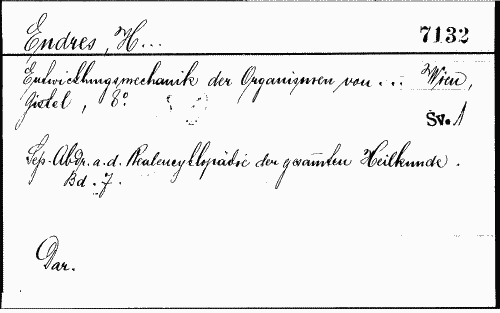 Endres, H...
7132
Entwicklungsmechanik der Organismen von ... Wien,
Gistel, 8°
Sv. 1
Sep.-Abdr. a. d. Realencyklopädie der gesam̄ten Heilkunde.
Bd. 7.
Dar.